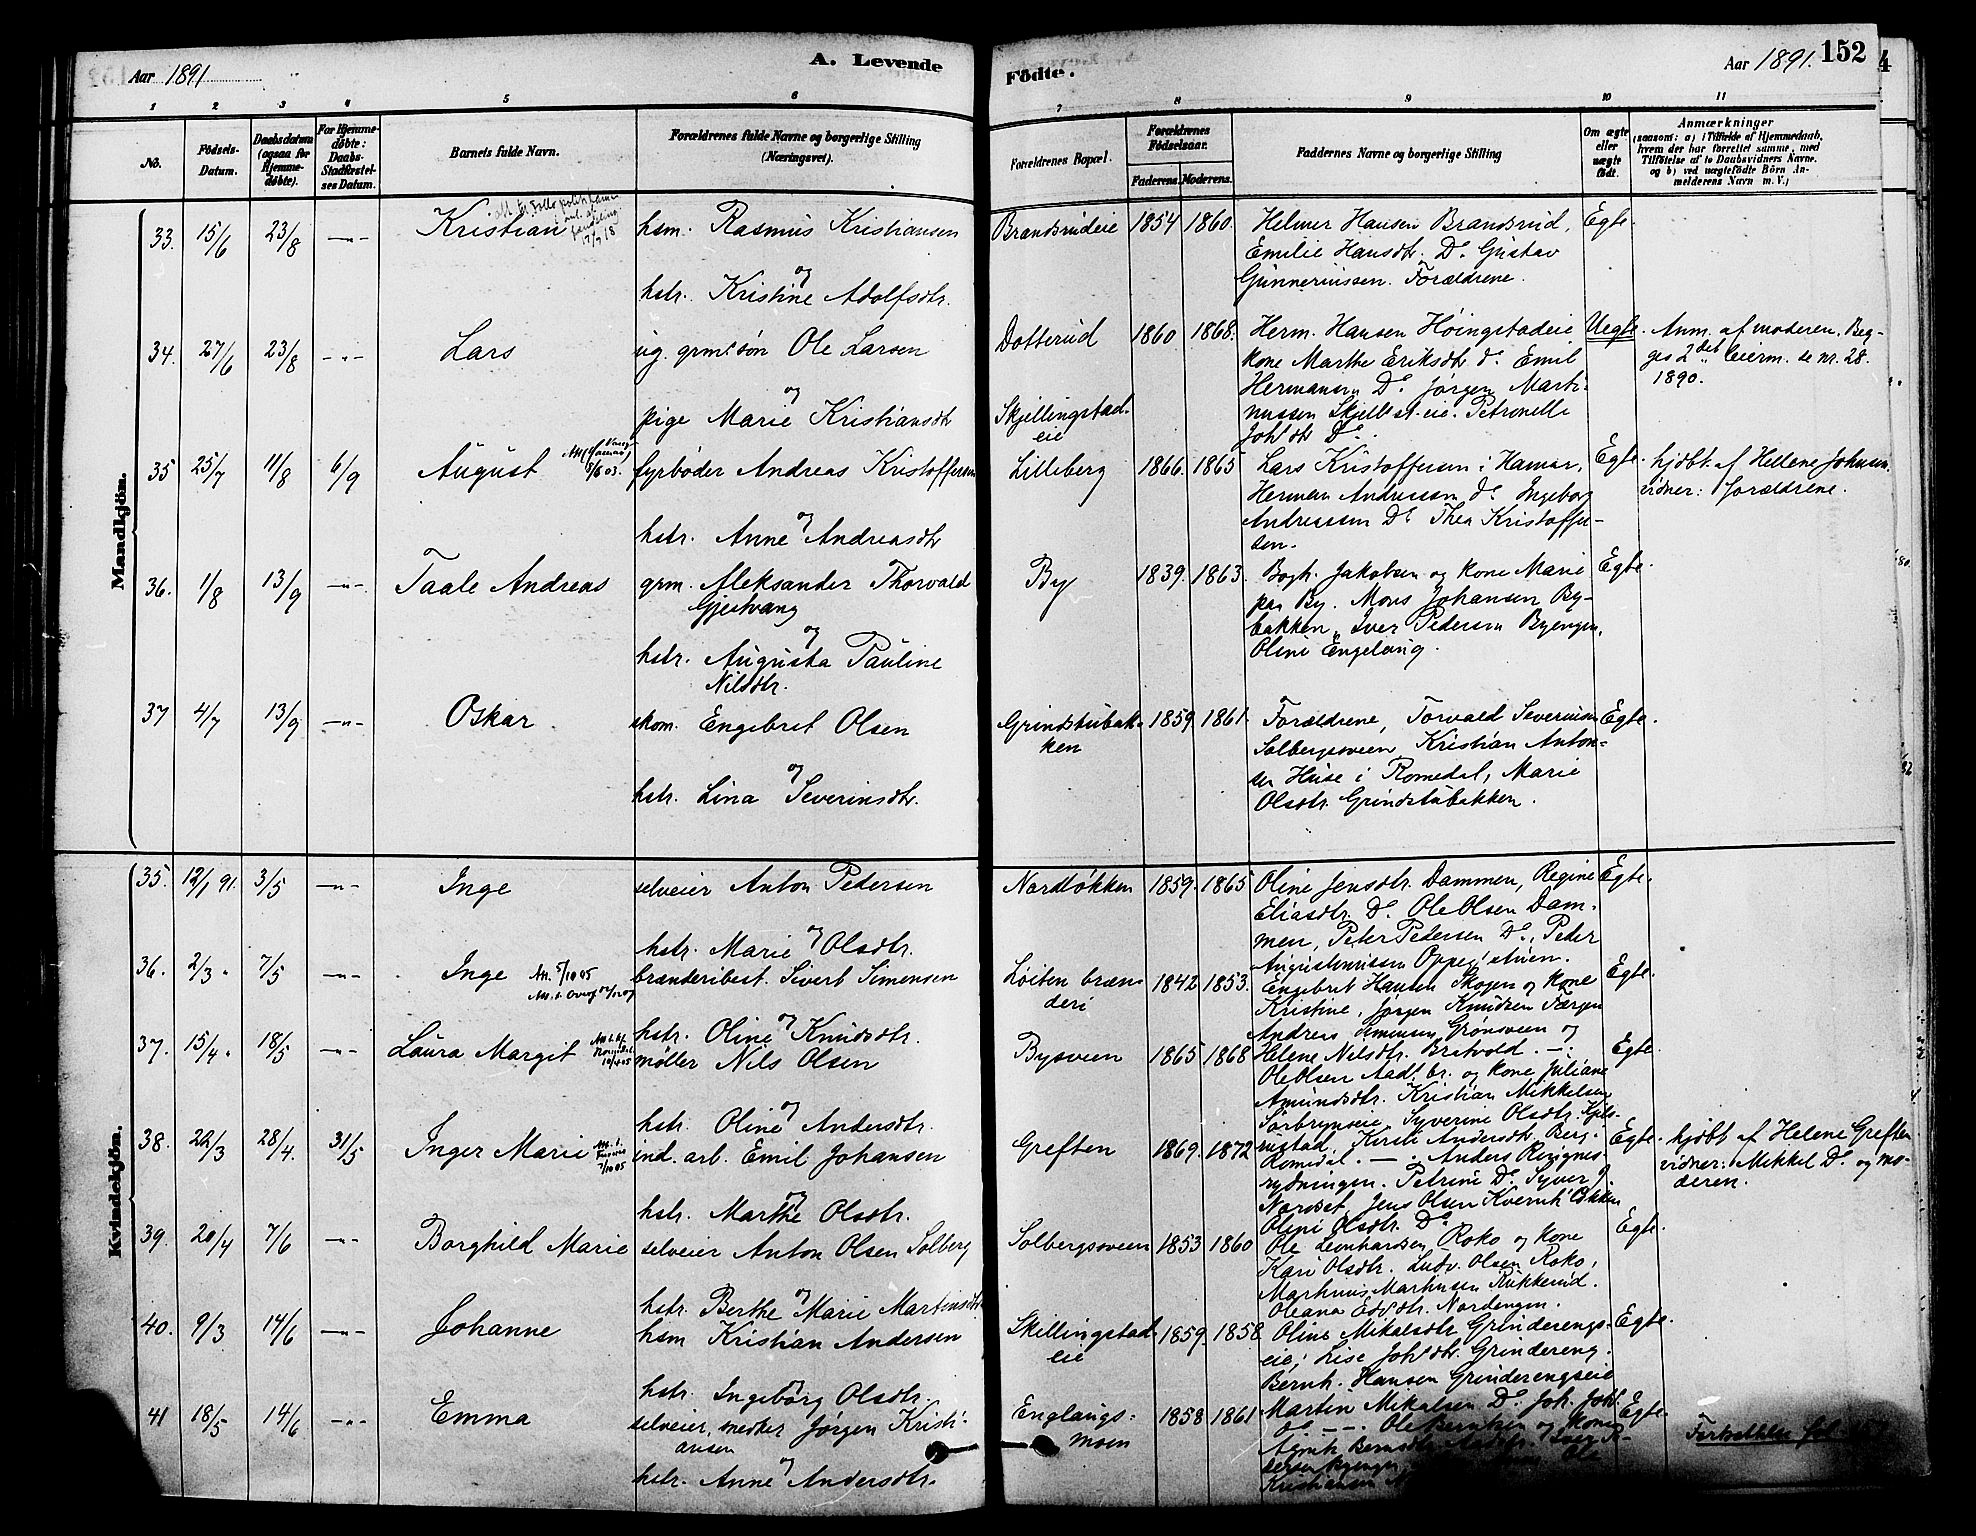 Aar 1891
A. Levende
Födte.
Aar 1891.
152
1 2 3 4 5 6 7 8 9 10 11
No.
Födsels-Datum.
Daabsdatum (ogsaa for Hjemmedöbte).
For Hjemmedöbte: Daabs-Stadfæstelses Datum.
Barnets fulde Navn.
Forældrenes fulde Navne og borgerlige Stilling (Næringsvei).
Forældrenes Bopæl.
Forældrenes Födselsaar.
Faderens. Moderens.
Faddernes Navne og borgerlige Stilling
Om ægte eller uægte födt.
Anmærkninger
(saasom: a) i Tilfælde af Hjemmedaab, hvem der har forrettet samme, med Tilföielse af to Daabsvidners Navne. og b) ved uægtefödte Börn Anmelderens Navn m. V.)
Mandkjön.
33. 15/6 23/8 -"- Kristian
hsm. Rasmus Kristiansen
og
hstr. Kristine Adolfsdtr.
Brandsrudeie 1854 1860.
Helmer Hansen Brandsrud,
Emilie Hansdtr. Do Gustav
Gunneriussen. Forældrene.
Egte.
34. 27/6 23/8 -"- Lars
ug. grmssøn Ole Larsen
og
pige Marie Kristiansdtr
Dotterud
Skjellingstad-
eie
1860 1868.
Herm. Hansen Høingstadeie
kone Marthe Eriksdtr do Emil
Hermansen Do Jørgen Marti-
nussen Skjellst.eie. Petronelle
Johsdtr Do.
Uegte.
Anm. af moderen. Beg-
ges 2det leierm. se nr. 28.
1890.
35 25/7 11/8 6/9 August
fyrbøder Andreas Kristoffersen
og
hstr. Anne Andreasdtr
Lilleberg 1866. 1865
Lars Kristoffersen i Hamar,
Herman Andreassen do Ingeborg
Andreassen Do Thea Kristoffer-
sen.
Egte.
hjdbt. af Hellene Johnsen.
vidner: forældrene.
36. 1/8 13/9 -"- Taale Andreas
grm. Aleksander Thorvald
Gjestvang
og
hstr. Augusta Pauline
Nilsdtr.
By 1839. 1863.
Bogh. Jakobsen og kone Marie
paa By. Mons Johansen By-
bakken, Iver Pedersen Byengen,
Oline Engelaug.
Egte.
37 4/7 13/9 -"- Oskar
skom. Engebret Olsen
og
hstr. Lina Severinsdtr.
Grindstubak-
ken
1859. 1861.
Forældrene, Torvald Severinsen
Solbergsveien, Kristian Anton-
sen Huse i Romedal, Marie
Olsdtr. Grindstubakken.
Egte.
Kvindekjön.
35. 12/1 91. 3/5 -"- Inge
selveier Anton Pedersen
og
hstr. Marie Olsdtr.
Nordløkken 1859. 1865
Oline Jensdtr. Dammen, Regine
Eliasdtr. Do. Ole Olsen Dam-
men, Peter Pedersen Do, Peder
Egte.
36. 2/3 " 7/5 -"- Inge
brænderibest. Sivert Simensen
og
hstr. Oline Knudsdtr.
Løiten bræn-
deri
1842 1853.
Engebret Hansen Skogen og kone
Kristine, Jørgen Knudsen Færgen
Andreas Simensen Grønsveen og
Egte.
37. 15/4 " 18/5 -"- Laura Margit
møller Nils Olsen
og
hstr. Oline Andersdtr.
Bysveen 1865 1868
Helene Nilsdtr. Bratvold. -.
Ole Olsen Aadl.br. og kone Juliane
Amundsdtr. Kristian Mikkelsen
Egte.
38. 22/3 28/4. 31/5 Inger Marie
ind. arb. Emil Johansen
og
hstr. Marthe Olsdtr.
Greften 1869. 1872
Romedal. - . Anders Ringnes-
rydningen. Petrine Do Syver J.
Nordset, Jens Olsen Kvernh.bakken
Oline Olsdtr. Do
Egte.
hjdbt af Helene Greften
vidner: Mikkel Do og mo-
deren.
39. 20/4 7/6 -"- Borghild Marie
selveier Anton Olsen Solberg
og
hstr. Berthe Marie Martinsdtr.
Solbergsveen 1853 1860
Ole Leonhardsen Roko og kone
Kari Olsdtr. Ludv. Olsen Roko,
Markus Markusen Rukkerud.
Oleana Edvdtr. Nordengen.
Egte.
40. 9/3 14/6 -"- Johanne
hsm Kristian Andersen
og
hstr. Ingeborg Olsdtr.
Skillingstad-
eie
1859. 1858
Oline Mikalsdtr Grinderengs-
eie, Lise Johsdtr. Grindereng.
Bernh. Hansen Grinderengseie
Egte.
41 18/5 14/6 -"- Emma
selveier, snedker Jørgen Kristi-
ansen
og
hstr. Anne Andersdtr.
Englaugs-
moen
1858 1861
Martin Mikalsen Do. Joh. Joh.
Egte.
Fortsættelse fol.